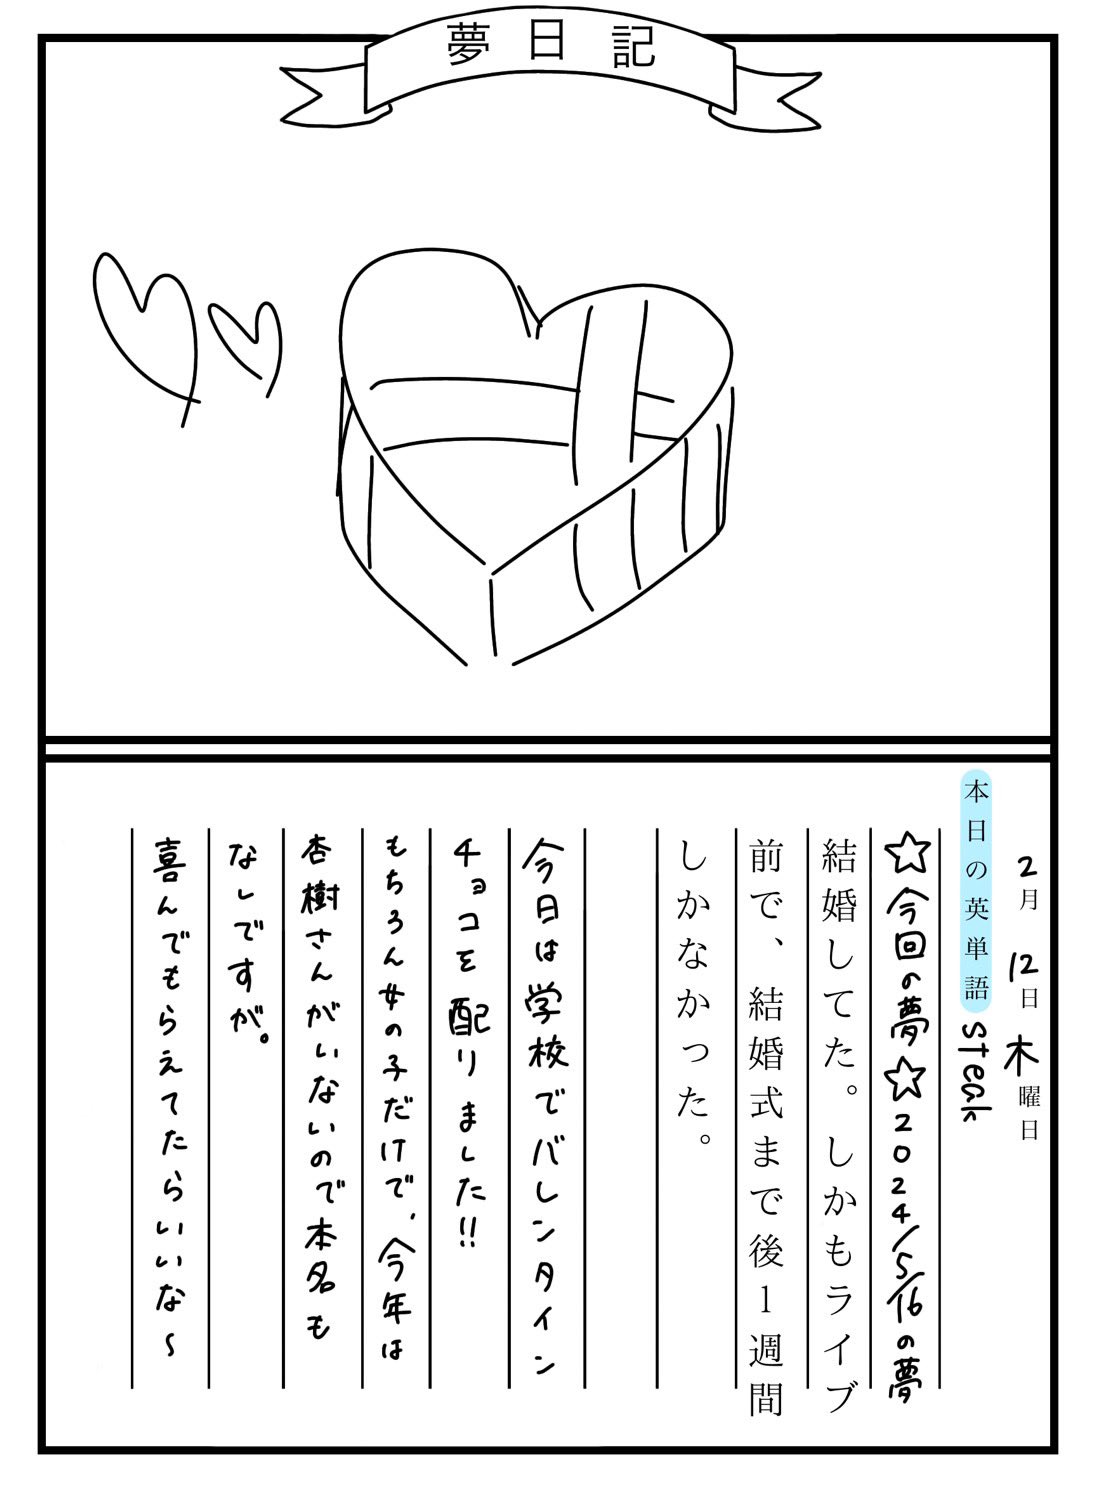 夢日記
2月 12日 木曜日
本日の英単語 steak
☆今回の夢☆2024/5/16の夢
結婚してた。しかもライブ
前で、結婚式まで後1週間
しかなかった。
今日は学校でバレンタイン
チョコを配りました!!
もちろん女の子だけで、今年は
杏樹さんがいないので本名も
なしですが。
喜んでもらえてたらいいな〜